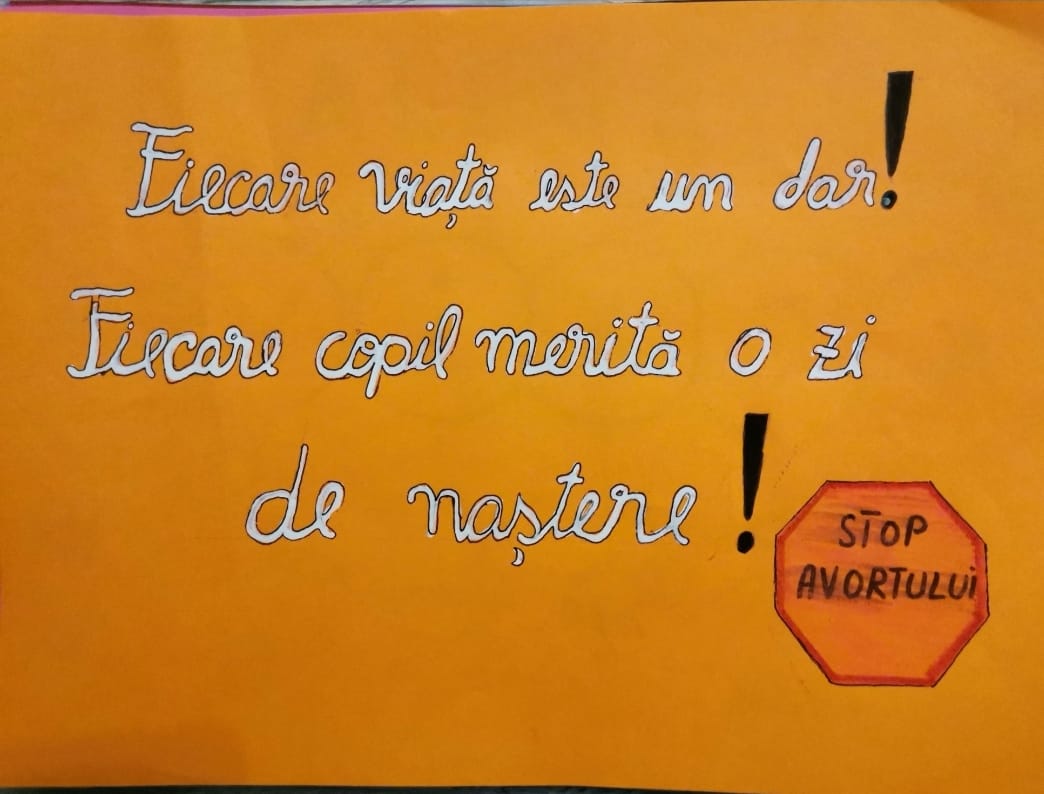 Fiecare viață este un dar!
Fiecare copil merită o zi
de naștere!
STOP
AVORTULUI